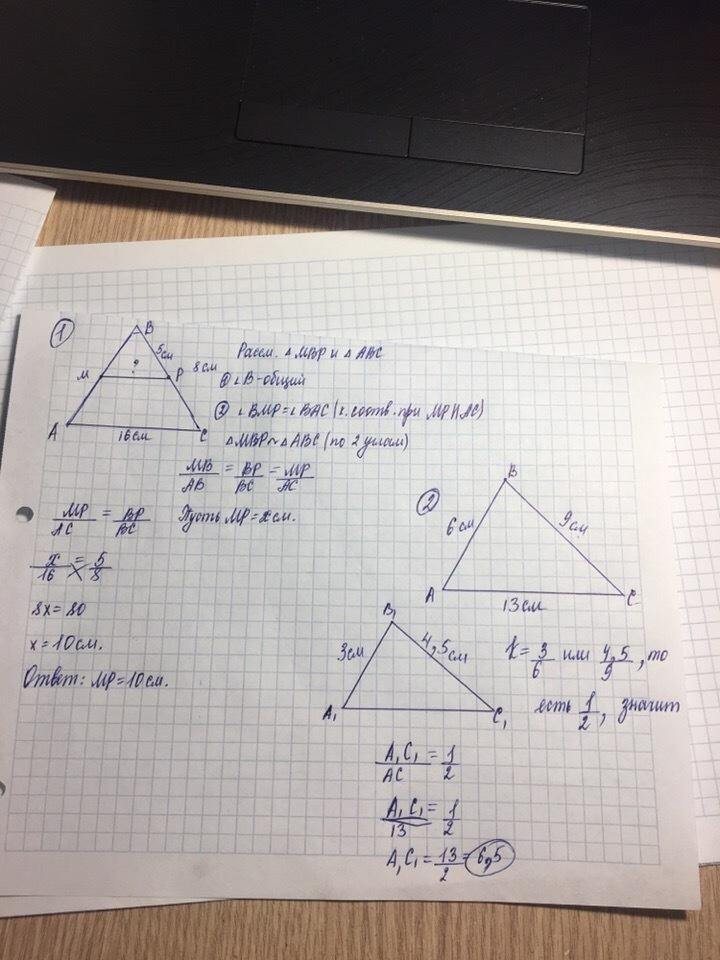 1
B
5см
8см
M
?
P
A
16см
C
Рассм. △MBP и △ABC
① ∠B-общий
② ∠BMP=∠BAC (к. соотв. при MP∥AC)
△MBP~△ABC (по 2 углам)
MB/AB = BP/BC = MP/AC
MP/AC = BP/BC Пусть MP=x см.
x/16 = 5/8
8x=80
x=10см.
Ответ: MP=10см.
2
B
6см
9см
A
13см
C
B₁
3см
4,5см
A₁
C₁
k=3/6 или 4,5/9, то
есть 1/2, значит
A₁C₁/AC = 1/2
A₁C₁/13 = 1/2
A₁C₁=13/2=6,5